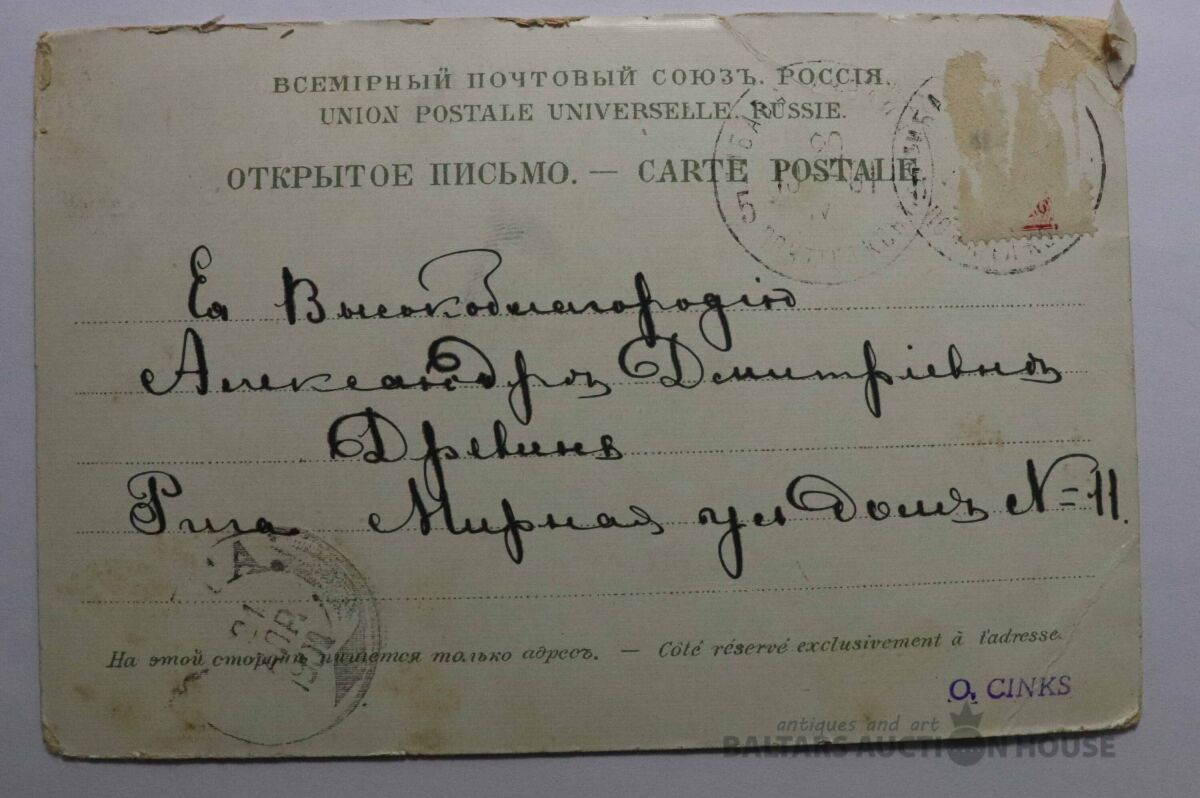 ВСЕМІРНЫЙ ПОЧТОВЫЙ СОЮЗЪ. РОССІЯ.
UNION POSTALE UNIVERSELLE. RUSSIE.
ОТКРЫТОЕ ПИСЬМО. — CARTE POSTALE
5
Ея Высокоблагородію
Александрѣ Дмитріевнѣ
Древинъ
Рига Мирная ул Домъ № 11.
На этой сторонѣ пишется только адресъ. — Côté réservé exclusivement à l'adresse.
O. CINKS
antiques and art
BALTARS AUCTION HOUSE